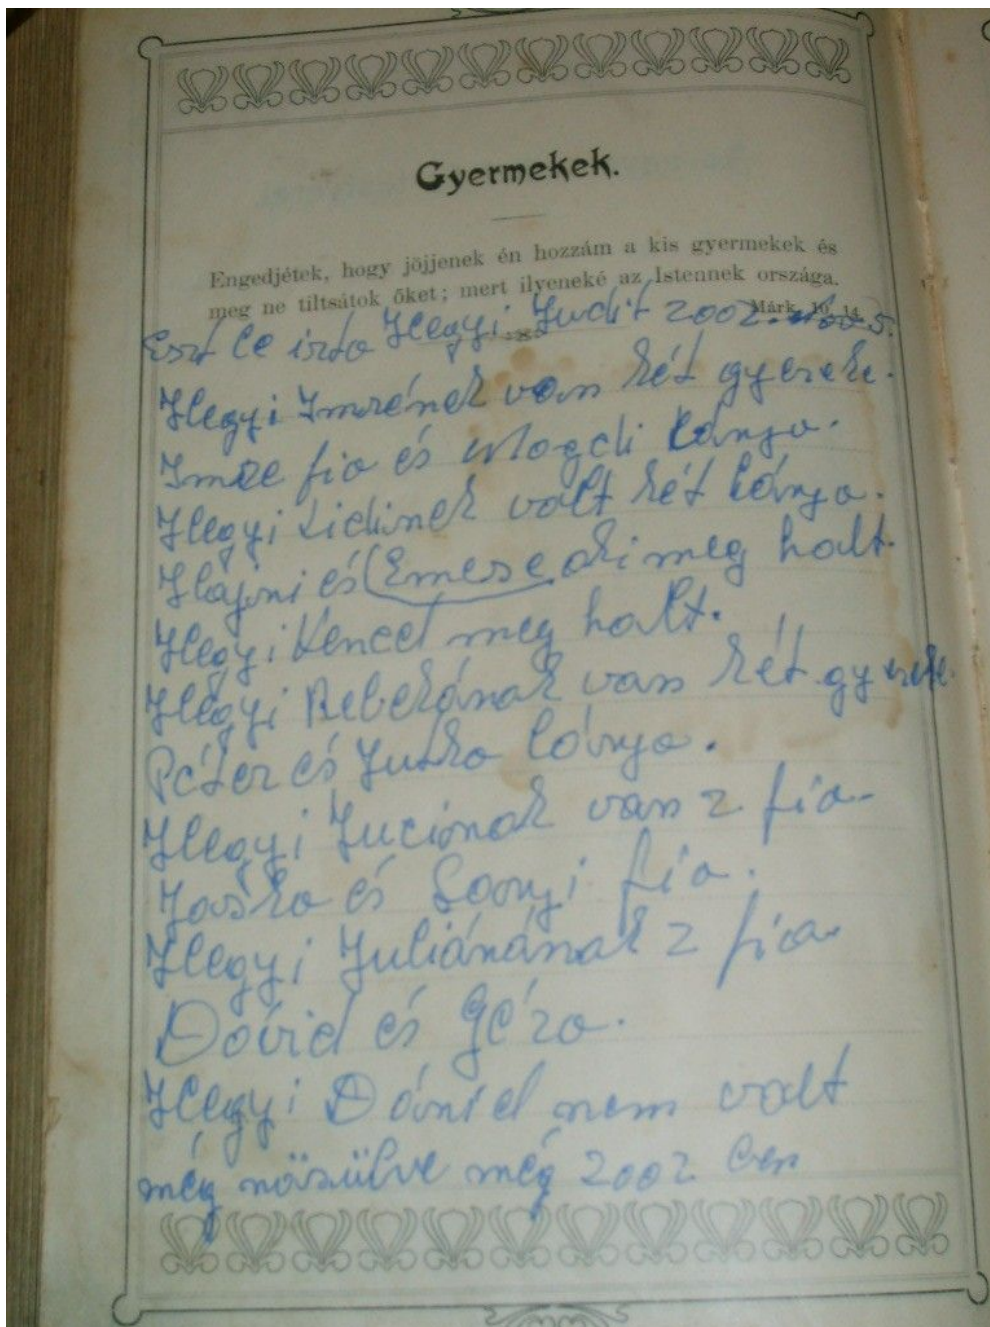 Gyermekek.
Engedjétek, hogy jöjjenek én hozzám a kis gyermekek és
meg ne tiltsátok őket; mert ilyeneké az Istennek országa.
Márk. 10, 14.
Ezt le irta Hegyi Judit 2002. 5.
Hegyi Imrének van két gyereke.
Imre fia és Magdi lánya.
Hegyi Lidinek valt két lánya.
Hajni és Emese aki meg halt.
Hegyi Vencel meg halt.
Hegyi Rebekának van két gyereke.
Péter és Jutka lánya.
Hegyi Jucinak van 2 fia.
Joska és fia.
Hegyi Juliánának 2 fia
Dávid és Géza.
Hegyi Dániel nem valt
még nösülve még 2002 ben